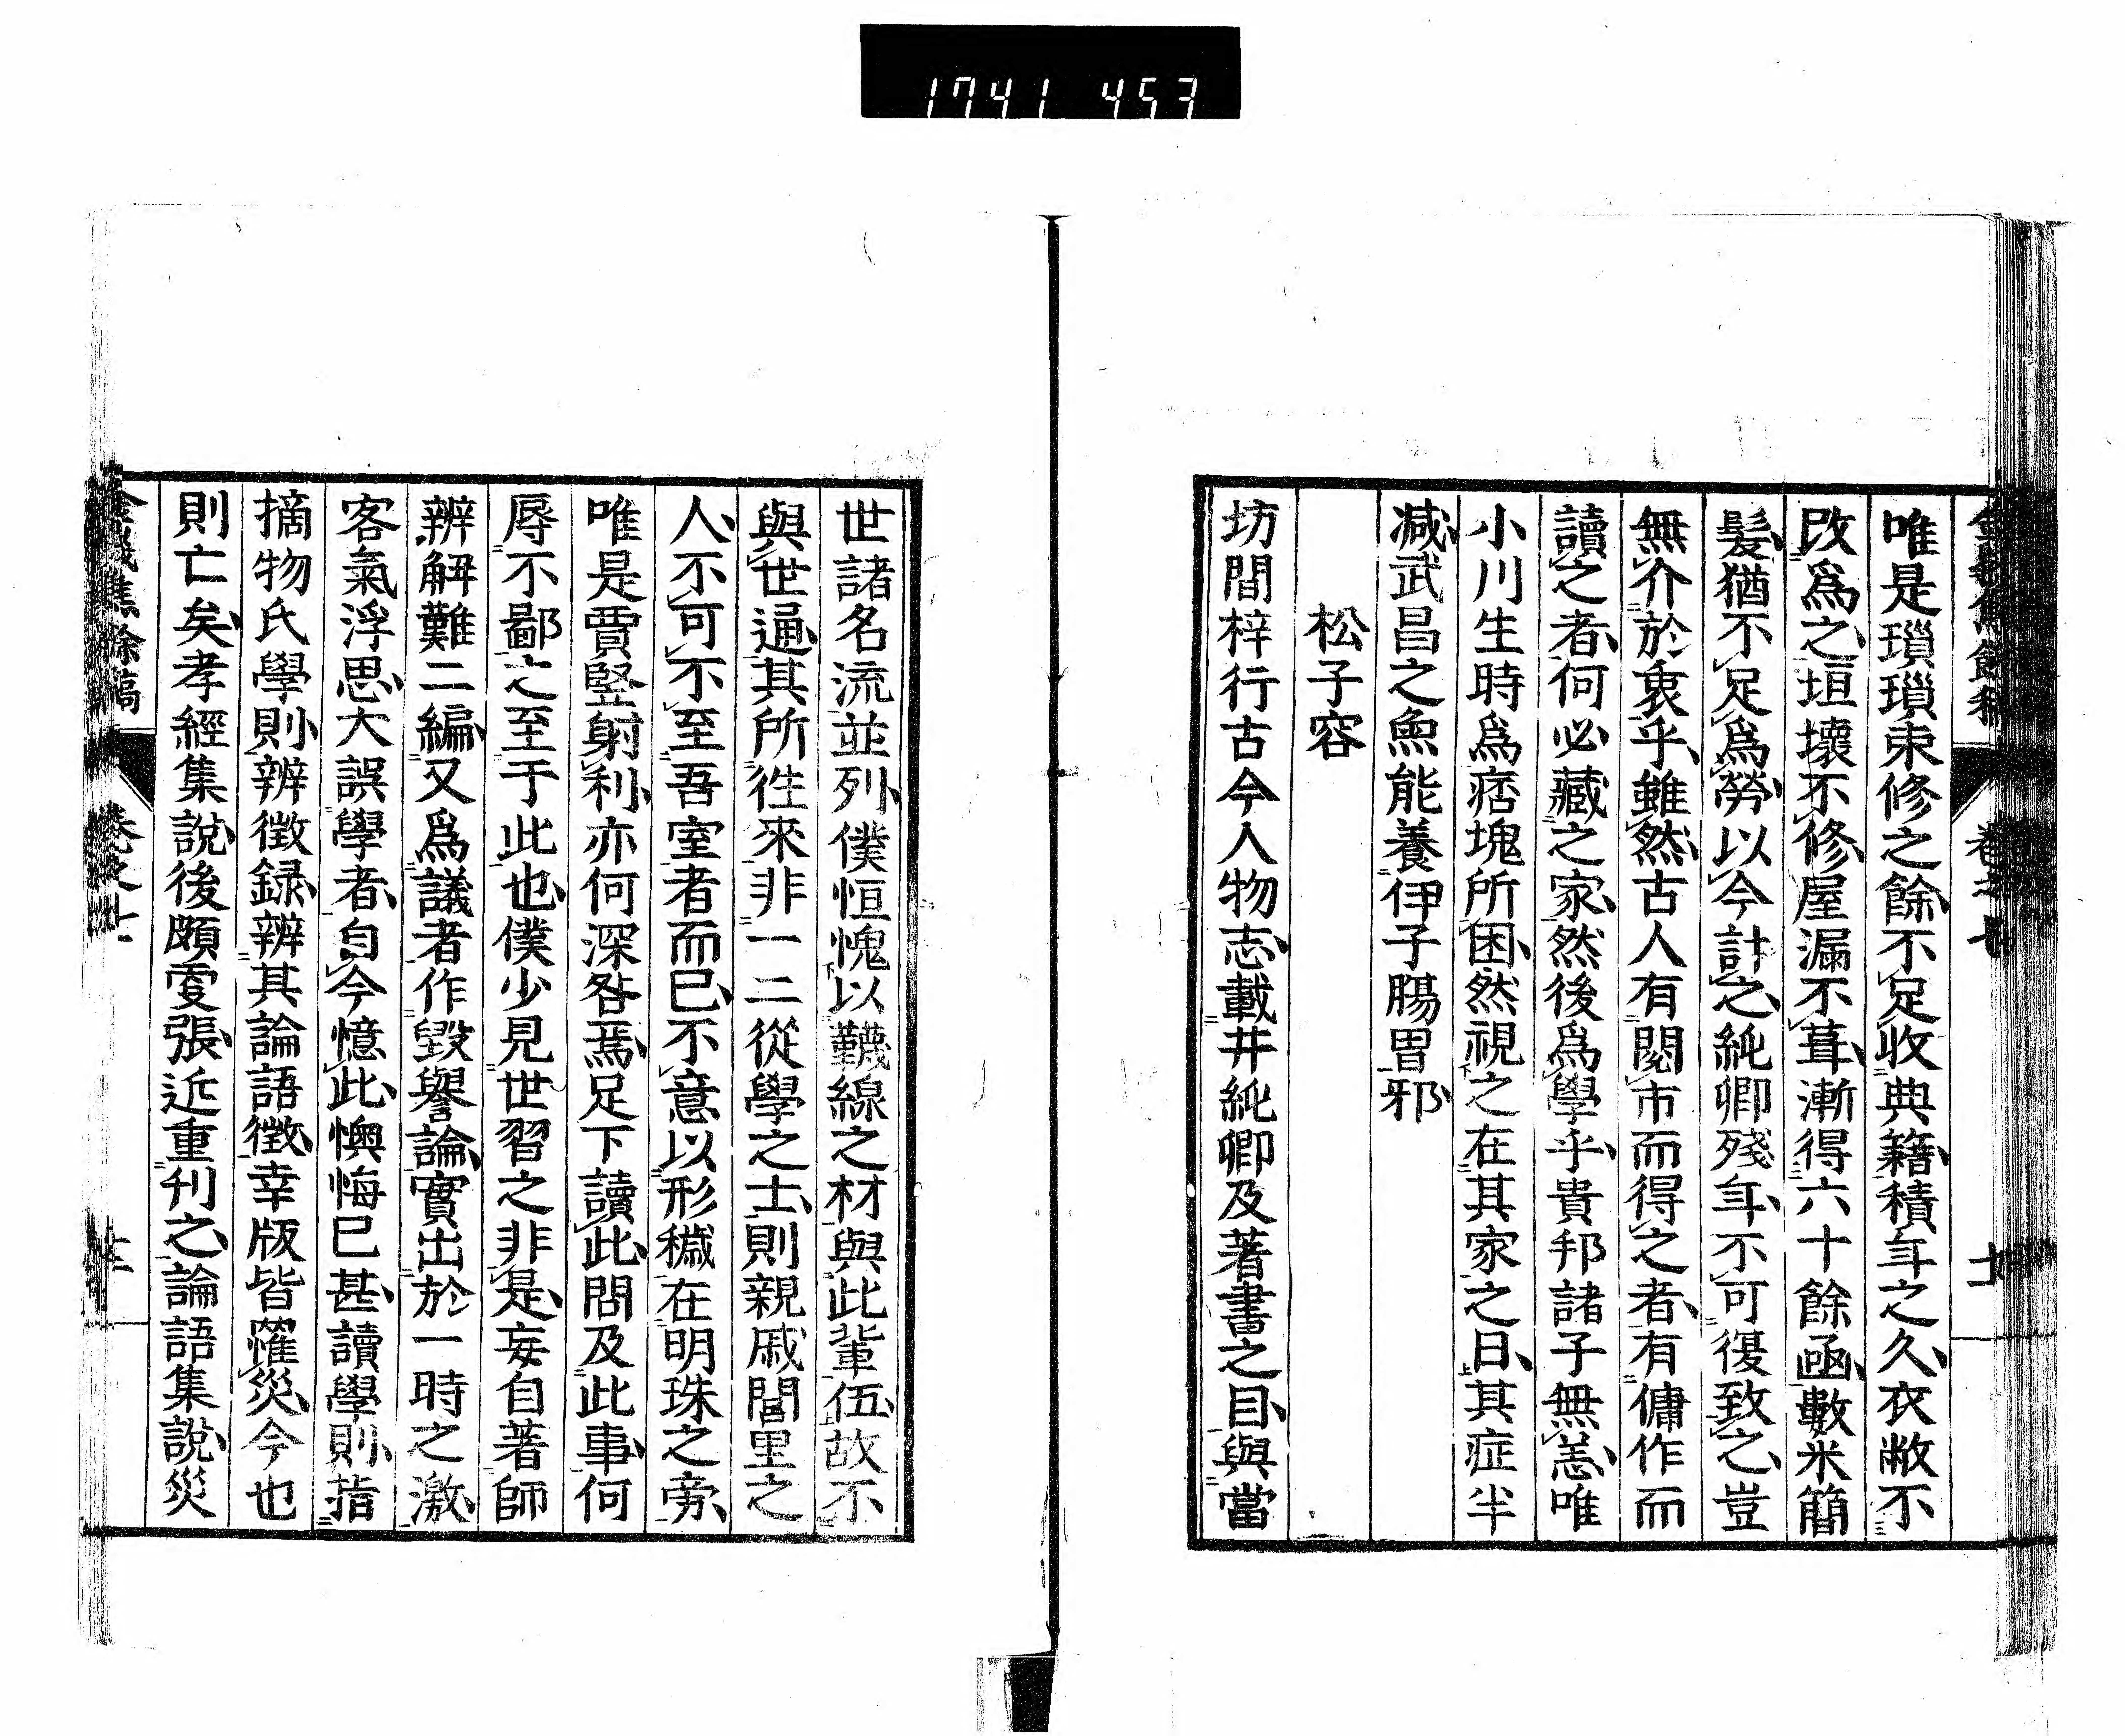 1741 453
唯是瑣瑣束修之餘不足收典籍積年之久衣敝不
改爲之垣壞不修屋漏不葺漸得六十餘函數米簡
髮猶不足爲勞以今計之純卿殘年不可復致之豈
無介於衷乎雖然古人有閱市而得之者有傭作而
讀之者何必藏之家然後爲學乎貴邦諸子無恙唯
小川生時爲痞塊所困然視之在其家之日其症半
減武昌之魚能養伊子腸胃邪
松子容
坊間梓行古今人物志載井純卿及著書之目與當
世諸名流並列僕恒愧以韈線之材與此輩伍故不
與世通其所徃來非一二從學之士則親戚閭里之
人不可不至吾室者而已不意以形穢在明珠之旁
唯是賈豎射利亦何深咎焉足下讀此問及此事何
辱不鄙之至于此也僕少見世習之非是妄自著師
辨解難二編又爲議者作毀譽論實出於一時之激
客氣浮思大誤學者自今憶此懊悔已甚讀學則指
摘物氏學則辨徵録辨其論語徵幸版皆罹災今也
則亡矣孝經集說後頗更張近重刊之論語集說災
卷之七